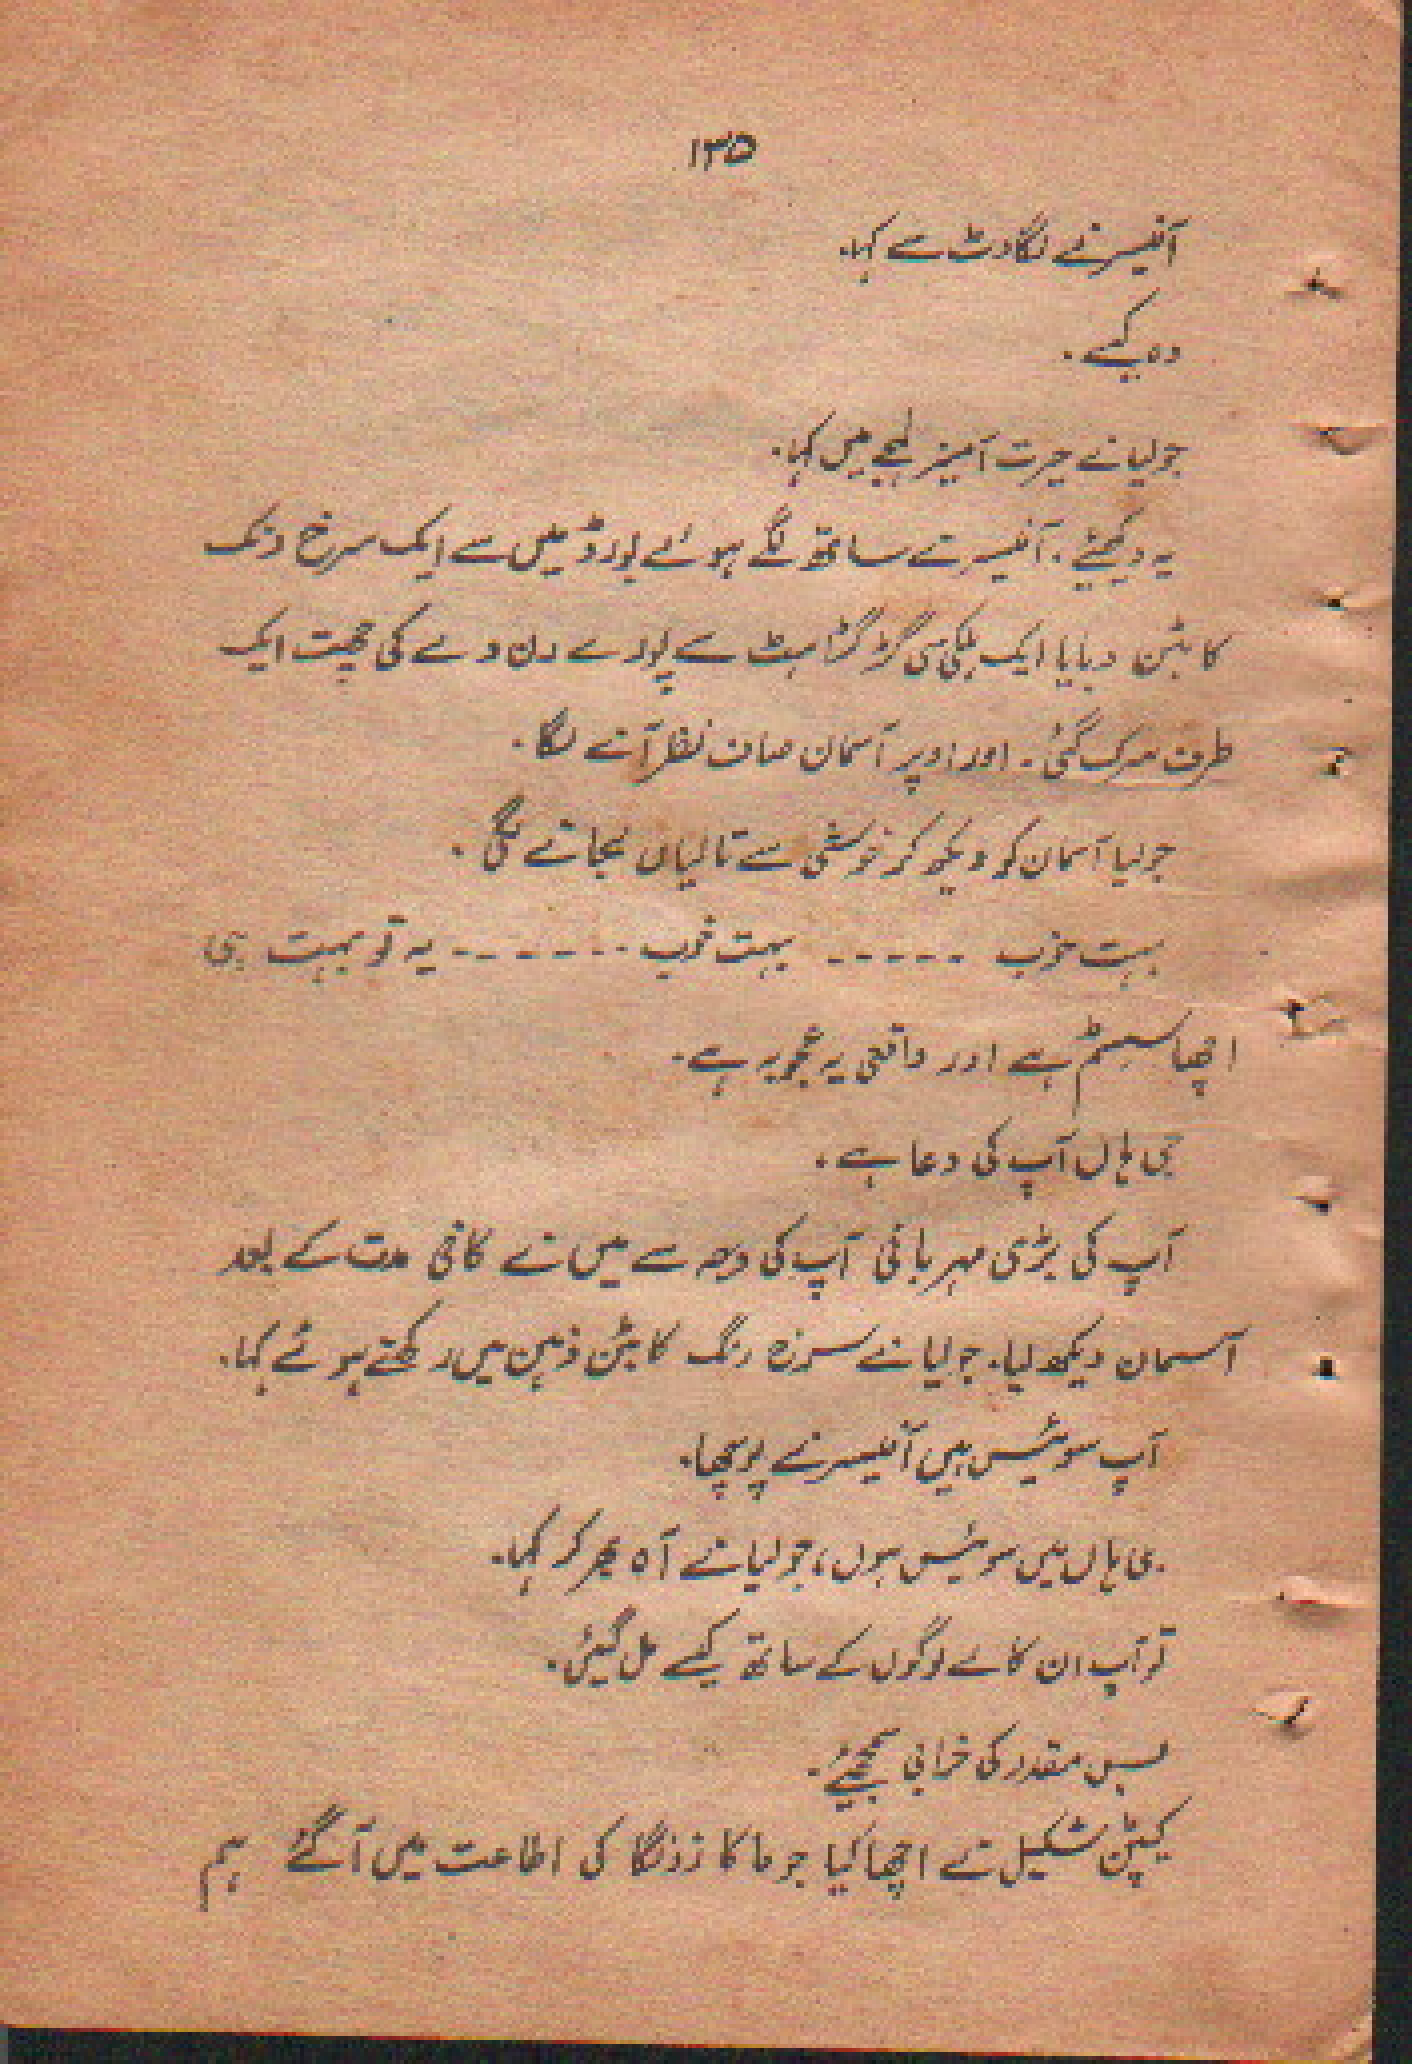 ۱۳۵
آفیسر نے لگاوٹ سے کہا۔
وہ کیسے۔
جولیا نے حیرت آمیز لہجے میں کہا۔
یہ دیکھئے۔ آفیسر نے ساتھ لگے ہوئے بورڈ میں سے ایک سرخ رنگ
کا بٹن دبایا ایک ہلکی سی گڑگڑاہٹ سے پورے رن وے کی چھت ایک
طرف سرک گئی۔ اور اوپر آسمان صاف نظر آنے لگا۔
جولیا آسمان کو دیکھ کر خوشی سے تالیاں بجانے لگی۔
بہت خوب ----- بہت خوب ------- یہ تو بہت ہی
اچھا سسٹم ہے اور واقعی یہ عجوبہ ہے۔
جی ہاں آپ کی دعا ہے۔
آپ کی بڑی مہربانی آپ کی وجہ سے میں نے کافی مدت کے بعد
آسمان دیکھ لیا۔ جولیا نے سرخ رنگ کا بٹن ذہن میں رکھتے ہوئے کہا۔
آپ سوئیس ہیں آفیسر نے پوچھا۔
جی ہاں میں سوئیس ہوں، جولیا نے آہ بھر کر کہا۔
تو آپ ان کالے لوگوں کے ساتھ کیسے مل گیئں۔
بس مقدر کی خرابی سمجھیئے۔
کیپٹن شکیل نے اچھا کیا جو ماکازونگا کی اطاعت میں آگئے ہم